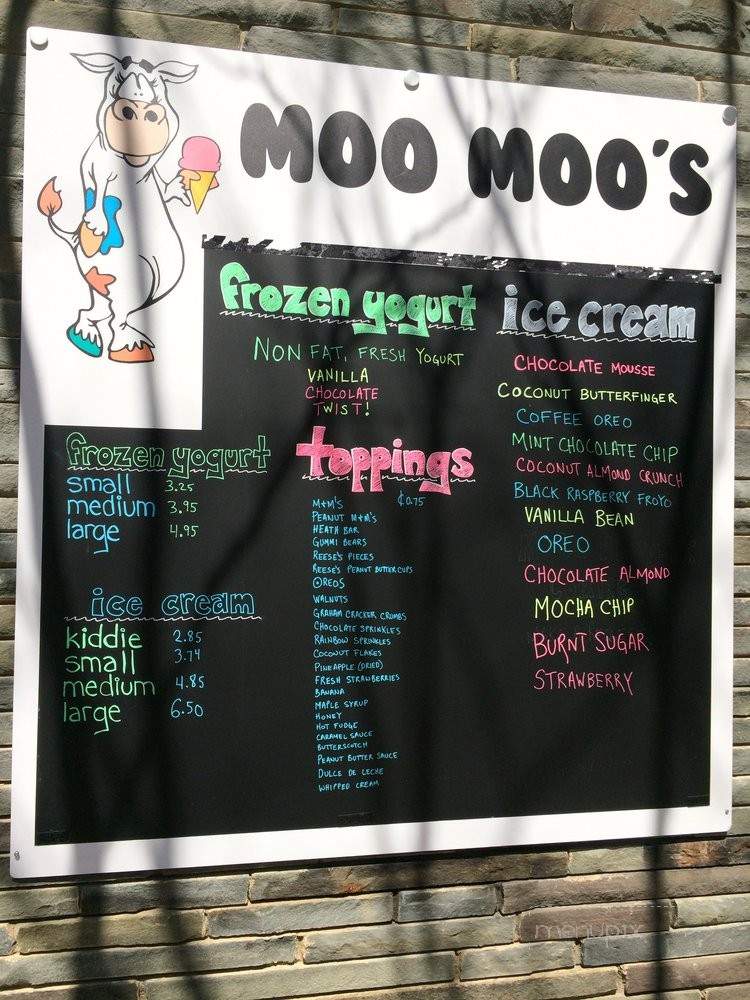 MOO MOO'S
frozen yogurt
NON FAT, FRESH YOGURT
VANILLA
CHOCOLATE
TWIST!
frozen yogurt
small 3.25
medium 3.95
large 4.95
ice cream
kiddie 2.85
small 3.74
medium 4.85
large 6.50
toppings
M+M'S ¢0.75
PEANUT M+M'S
HEATH BAR
GUMMI BEARS
REESE'S PIECES
REESE'S PEANUT BUTTER CUPS
OREOS
WALNUTS
GRAHAM CRACKER CRUMBS
CHOCOLATE SPRINKLES
RAINBOW SPRINKLES
COCONUT FLAKES
PINEAPPLE (DRIED)
FRESH STRAWBERRIES
BANANA
MAPLE SYRUP
HONEY
HOT FUDGE
CARAMEL SAUCE
BUTTERSCOTCH
PEANUT BUTTER SAUCE
DULCE DE LECHE
WHIPPED CREAM
ice cream
CHOCOLATE MOUSSE
COCONUT BUTTERFINGER
COFFEE OREO
MINT CHOCOLATE CHIP
COCONUT ALMOND CRUNCH
BLACK RASPBERRY FROYO
VANILLA BEAN
OREO
CHOCOLATE ALMOND
MOCHA CHIP
BURNT SUGAR
STRAWBERRY
menupix